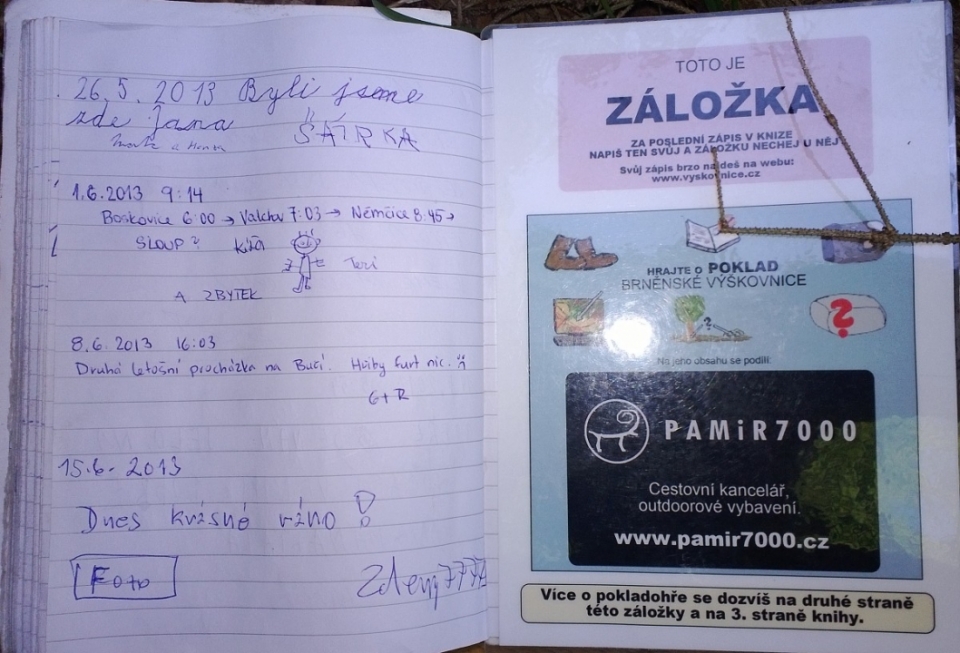 26.5. 2013 Byli jsme
zde Jana ŠÁTRKA
1.6.2013 9:14
Boskovice 6:00 → Valchov 7:03 → Němčice 8:45 →
SLOUP?
Teri
A ZBYTEK
8.6.2013 16:03
Druhá letošní procházka na Bučí. Houby furt nic.
G+R
15.6. 2013
Dnes krásné ráno!
Foto
TOTO JE
ZÁLOŽKA
ZA POSLEDNÍ ZÁPIS V KNIZE
NAPIŠ TEN SVŮJ A ZÁLOŽKU NECHEJ U NĚJ
Svůj zápis brzo najdeš na webu:
www.vyskovnice.cz
HRAJTE O POKLAD
BRNĚNSKÉ VÝŠKOVNICE
?
?
Na jeho obsahu se podílí:
PAMiR7000
Cestovní kancelář,
outdoorové vybavení.
www.pamir7000.cz
Více o pokladohře se dozvíš na druhé straně
této záložky a na 3. straně knihy.